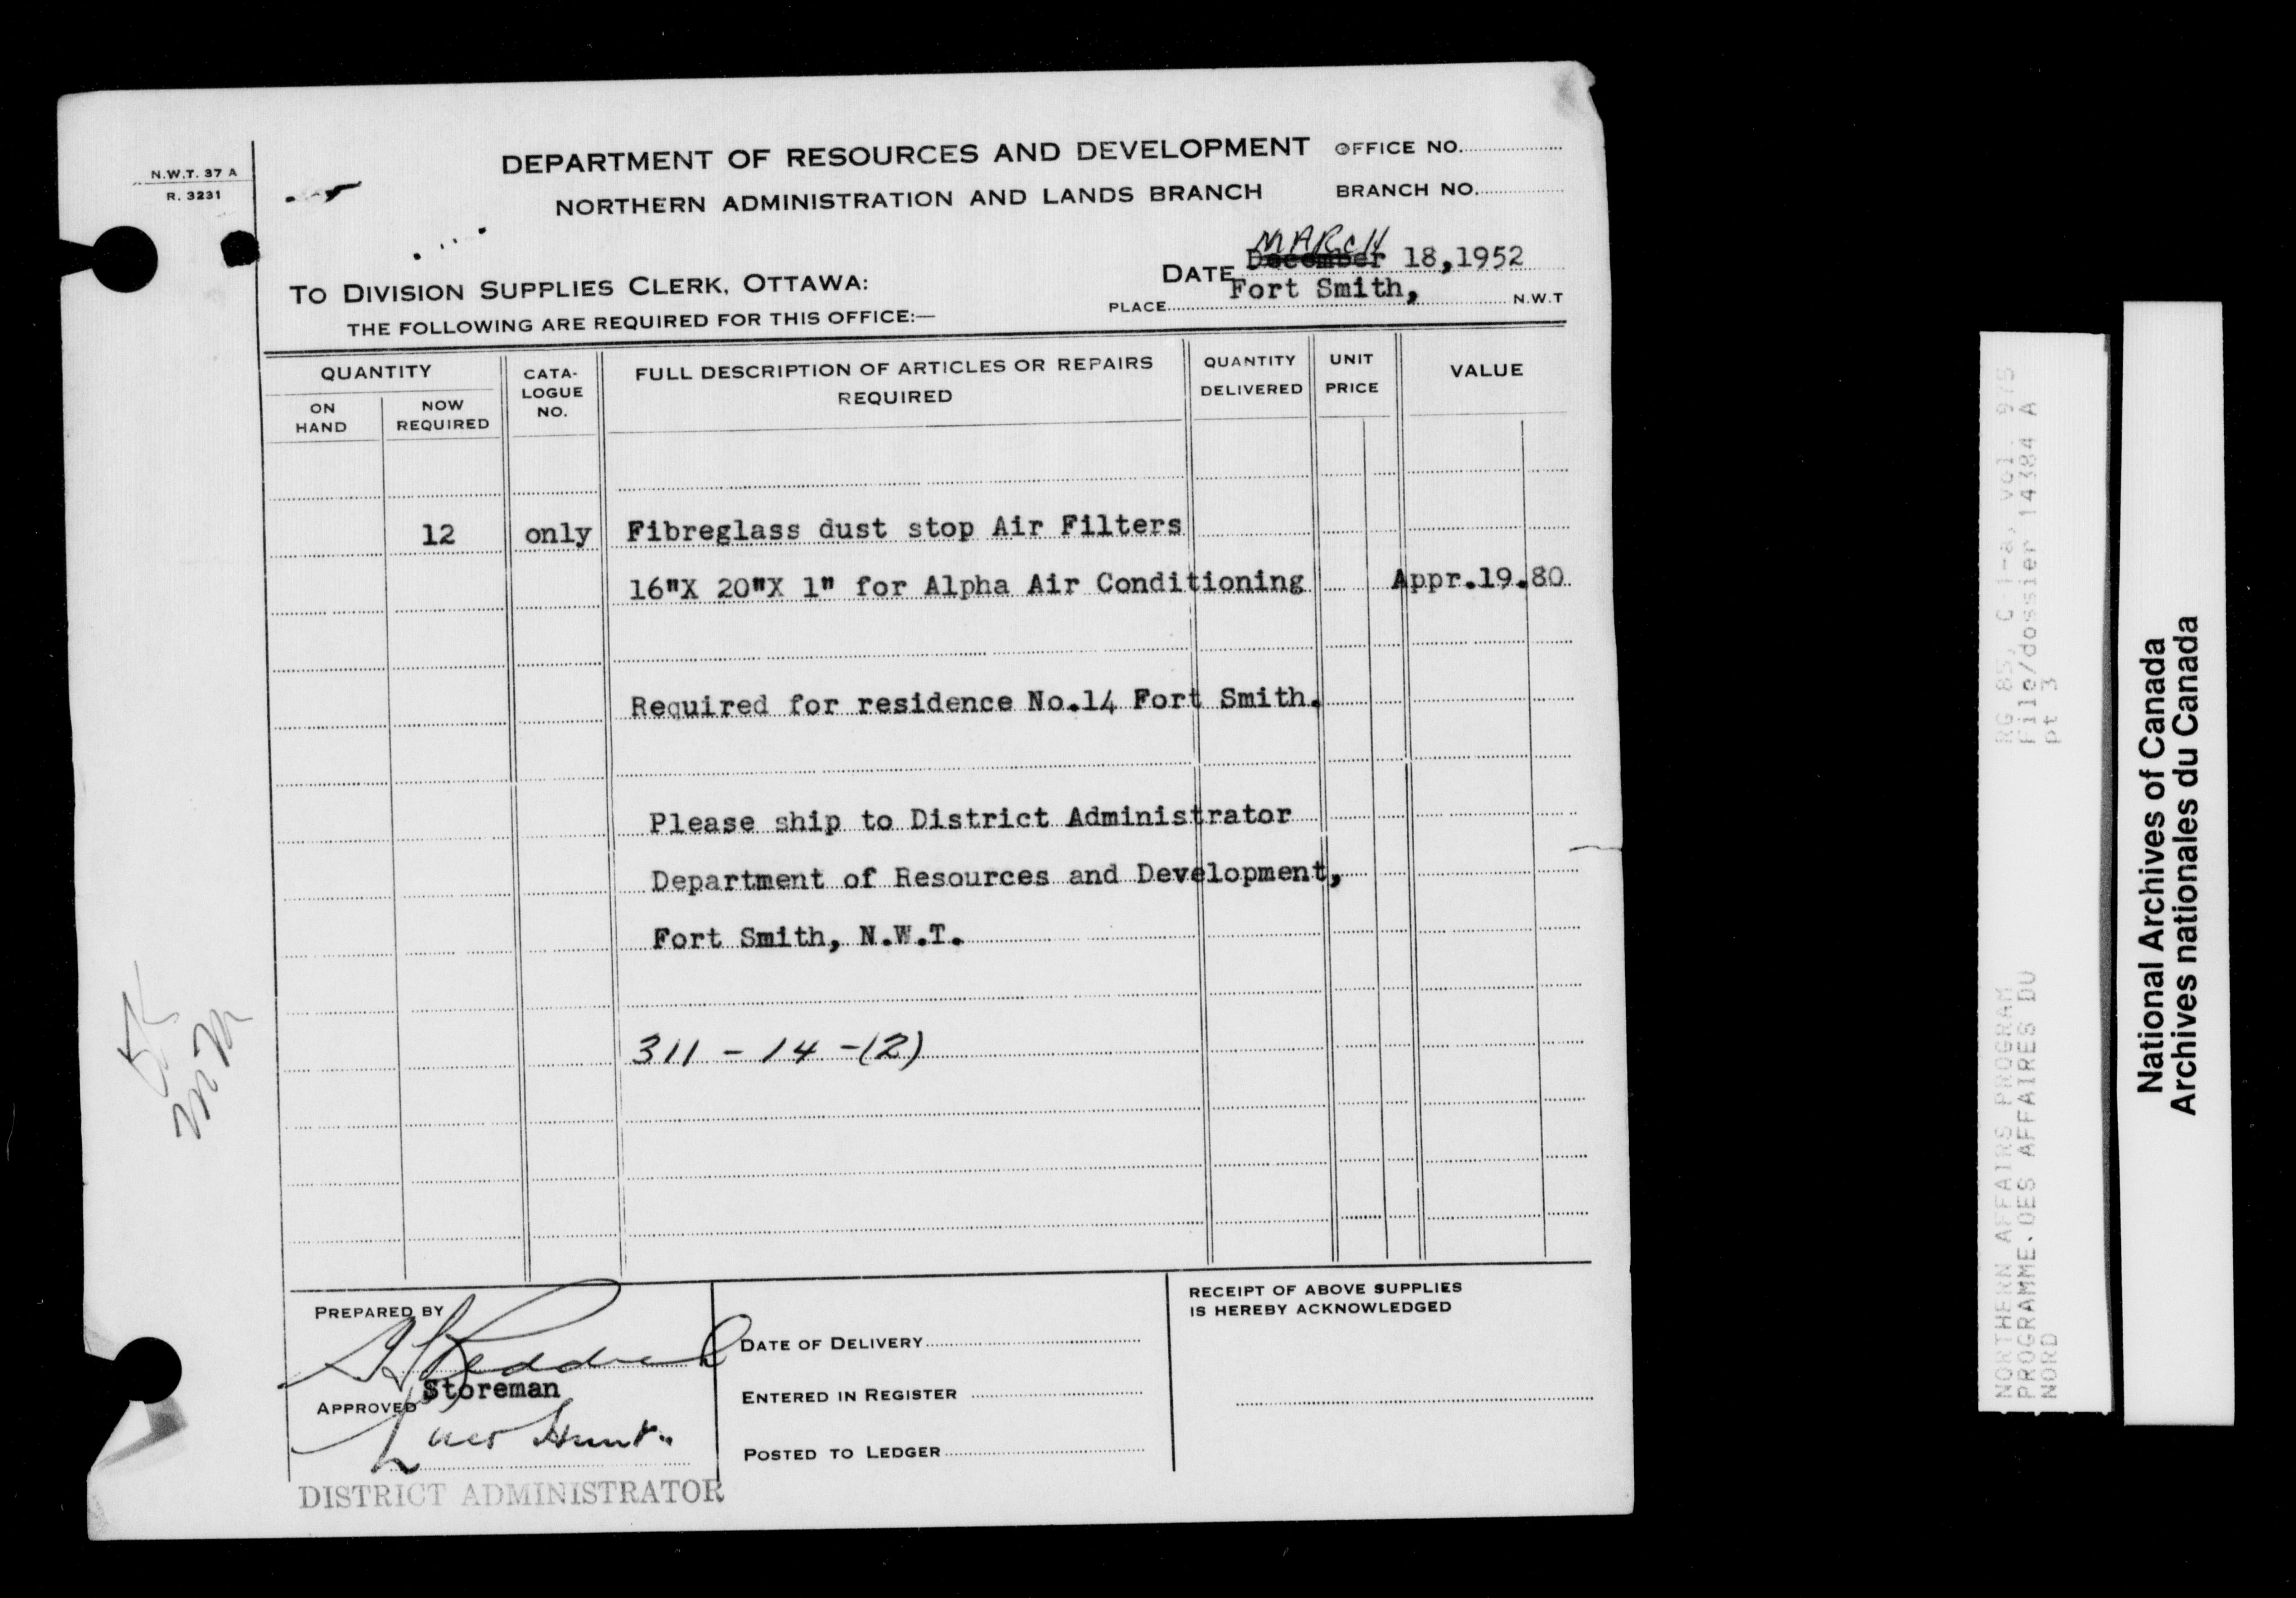 N.W.T. 37 A
R. 3231
DEPARTMENT OF RESOURCES AND DEVELOPMENT
OFFICE NO.
NORTHERN ADMINISTRATION AND LANDS BRANCH
BRANCH NO.
MARCH
TO DIVISION SUPPLIES CLERK, OTTAWA:
DATE December 18,1952
THE FOLLOWING ARE REQUIRED FOR THIS OFFICE:—
PLACE Fort Smith, N.W.T
QUANTITY
ON HAND
NOW REQUIRED
CATA-
LOGUE
NO.
FULL DESCRIPTION OF ARTICLES OR REPAIRS
REQUIRED
QUANTITY
DELIVERED
UNIT
PRICE
VALUE
12 only Fibreglass dust stop Air Filters
16"X 20"X 1" for Alpha Air Conditioning Appr.19.80
Required for residence No.14 Fort Smith.
Please ship to District Administrator
Department of Resources and Development,
Fort Smith, N.W.T.
311 - 14 - (2)
PREPARED BY
Storeman
APPROVED
Hunt
DISTRICT ADMINISTRATOR
DATE OF DELIVERY
ENTERED IN REGISTER
POSTED TO LEDGER
RECEIPT OF ABOVE SUPPLIES
IS HEREBY ACKNOWLEDGED
NORTHERN AFFAIRS PROGRAM
PROGRAMME DES AFFAIRES DU
NORD
RG 85, C-1-a, vol. 975
File/dossier 14384 A
pt 3
National Archives of Canada
Archives nationales du Canada